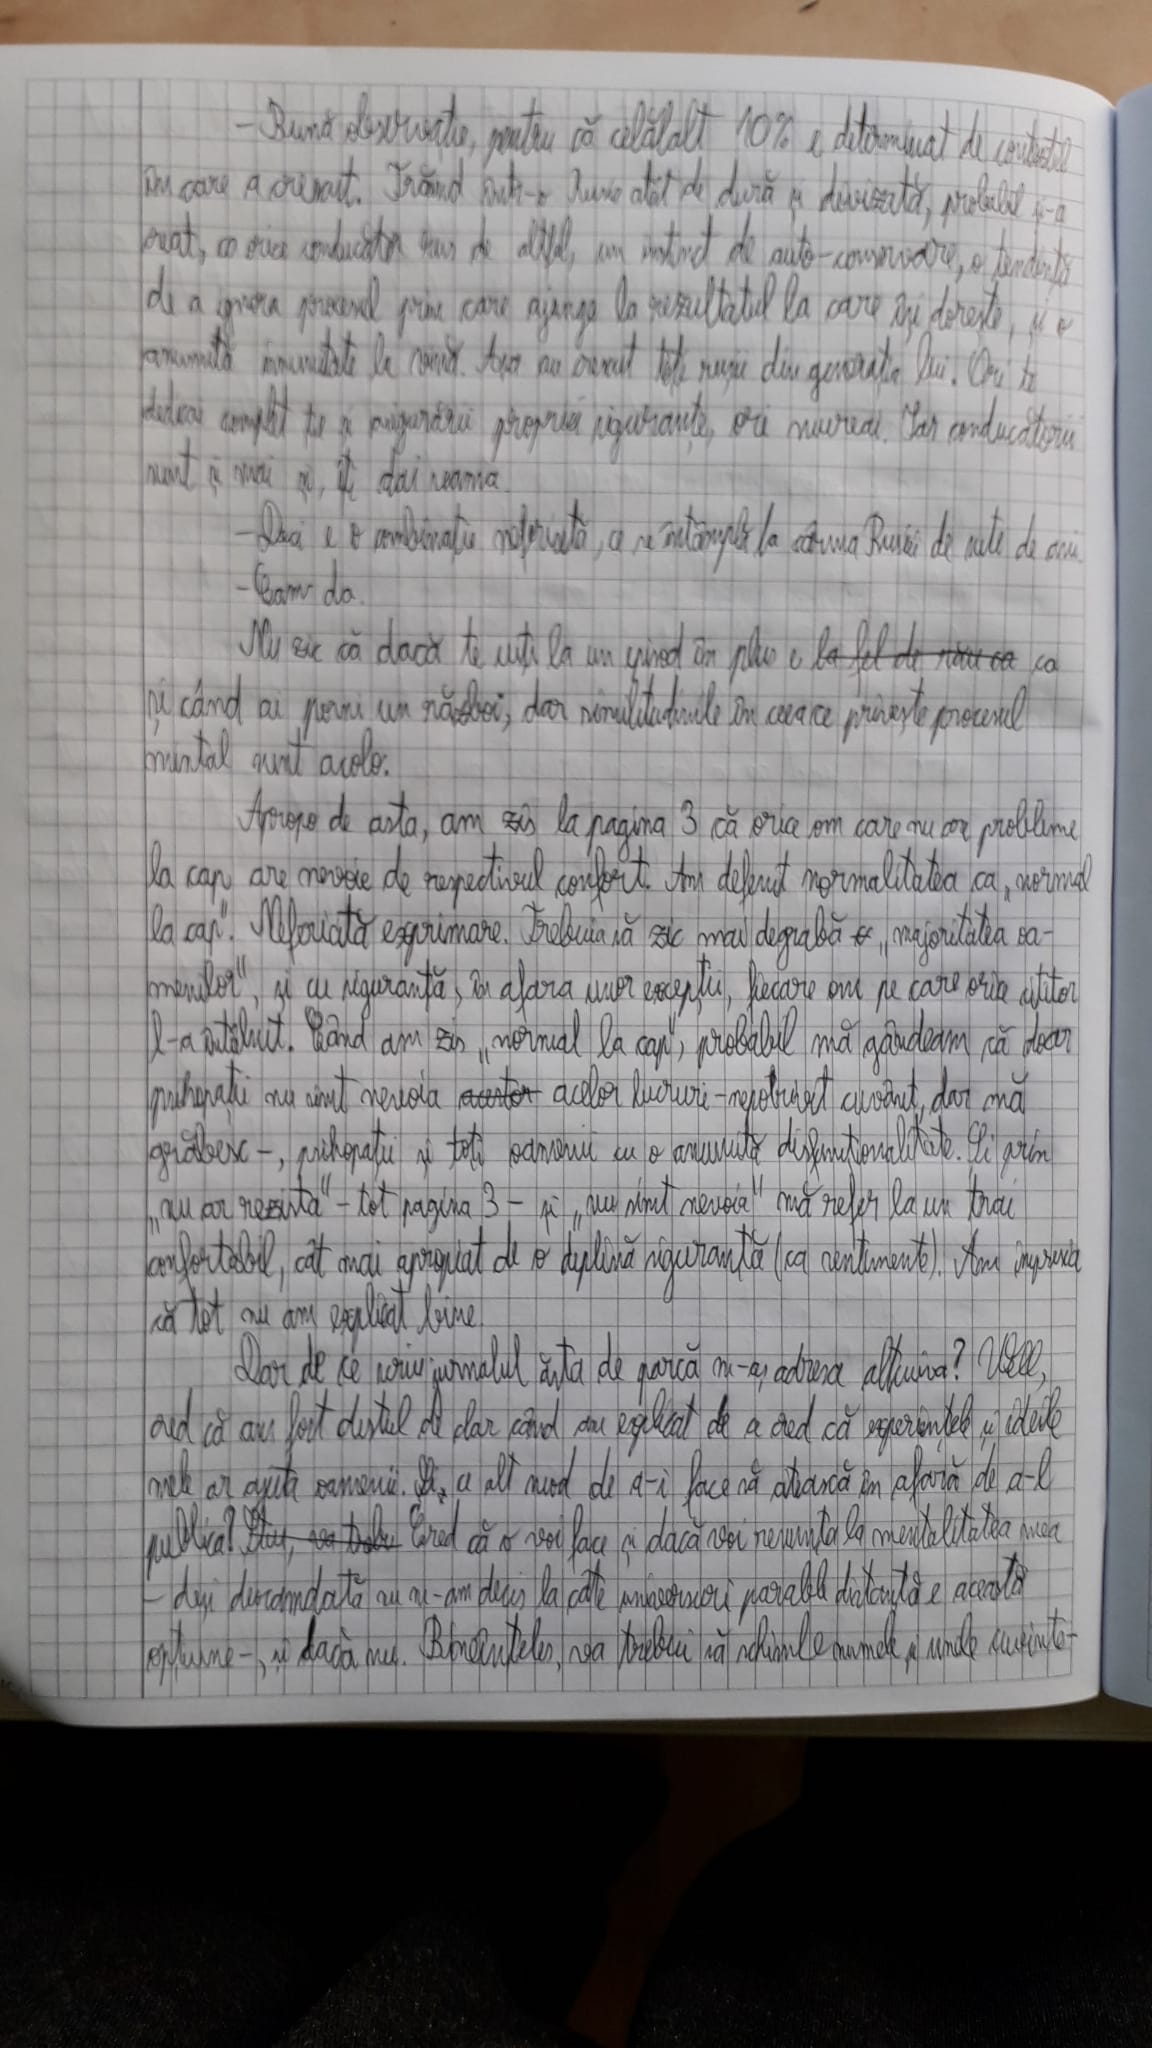 - Bună observație, pentru că celălalt 10% e determinat de contextul
în care a crescut. Trăind într-o Rusie atât de dură și divizată, probabil și-a
creat, ca orice conducător rus de altfel, un instinct de auto-conservare, o tendință
de a ignora procesul prin care ajunge la rezultatul la care își dorește, și o
anumită imunitate la vină. Așa au crescut toți rușii din generația lui. Ori te
dedicai complet ție și asigurării propriei siguranțe, ori mureai. Iar conducătorii
sunt și mai și, îți dai seama.
- Deci e o combinație nefericită, ce se întâmplă la cârma Rusiei de sute de ani.
- Cam da.
Nu zic că dacă te uiți la un episod în plus e la fel de rău ca ca
și când ai porni un război, dar similitudinile în ceea ce privește procesul
mintal sunt acolo.
Apropo de asta, am zis la pagina 3 că orice om care nu are probleme
la cap are nevoie de respectivul confort. Am definit normalitatea ca „normal
la cap". Nefericită exprimare. Trebuia să zic mai degrabă „majoritatea oa-
menilor", și cu siguranță, în afara unor excepții, fiecare om pe care orice cititor
l-a întâlnit. Când am zis „normal la cap", probabil mă gândeam că doar
psihopații nu simt nevoia acestor acelor lucruri - nepotrivit cuvânt, dar mă
grăbesc -, psihopații și toți oamenii cu o anumită disfuncționalitate. Și prin
„nu ar rezista" - tot pagina 3 - și „nu simt nevoia" mă refer la un trai
confortabil, cât mai apropiat de o deplină siguranță (ca sentimente). Am impresia
că tot nu am explicat bine.
Dar de ce scriu jurnalul ăsta de parcă m-aș adresa altcuiva? Well,
cred că am fost destul de clar când am explicat de a cred că experiențele și ideile
mele ar ajuta oamenii. Și, ce alt mod de a-i face să atragă în afară de a-l
publica? Cred că o voi face și dacă voi renunța la mentalitatea mea
- deși deocamdată nu m-am decis la câte universuri paralele distanță e această
opțiune -, și dacă nu. Bineînțeles, va trebui să schimb numele și unele cuvinte-